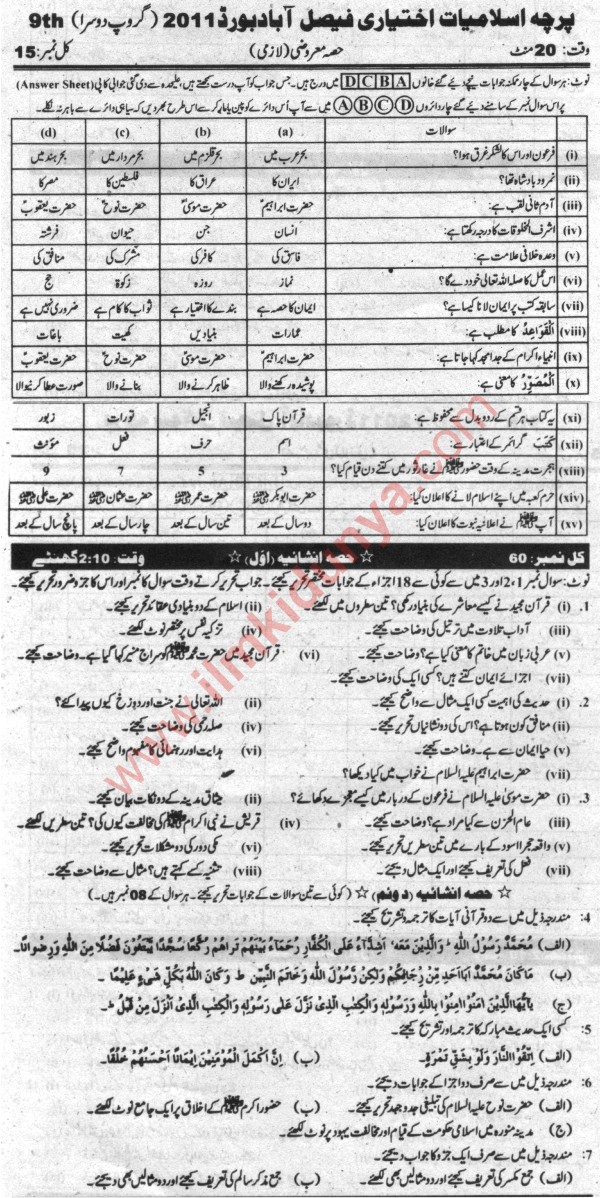 پرچہ اسلامیات اختیاری فیصل آباد بورڈ 2011 (گروپ دوسرا) 9th
وقت: 20 منٹ حصہ معروضی (لازمی) کل نمبر: 15
نوٹ: ہر سوال کے چار ممکنہ جوابات نیچے دیئے گئے خانوں A B C D میں درج ہیں۔ جس جواب کو آپ درست سمجھتے ہیں، علیحدہ دی گئی جوابی کاپی (Answer Sheet)
پر اس سوال نمبر کے سامنے دیئے گئے چار دائروں A B C D میں سے آپ اُس دائرے کو پین یا مارکر سے اس طرح بھر دیں کہ سیاہی دائرے سے باہر نہ نکلے۔
سوالات (a) (b) (c) (d)
(i) فرعون اور اس کا لشکر غرق ہوا؟ بحرِ عرب میں بحرِ قلزم میں بحرِ مردار میں بحرِ ہند میں
(ii) نمرود بادشاہ تھا؟ ایران کا عراق کا فلسطین کا مصر کا
(iii) آدم ثانی لقب ہے: حضرت ابراہیمؑ حضرت موسیٰؑ حضرت نوحؑ حضرت یعقوبؑ
(iv) اشرف المخلوقات کا درجہ رکھتا ہے: انسان جن حیوان فرشتہ
(v) وعدہ خلافی علامت ہے: فاسق کی کافر کی مشرک کی منافق کی
(vi) اس عمل کا صلہ اللہ تعالٰی خود دے گا؟ نماز روزہ زکوٰۃ حج
(vii) سابقہ کتب پر ایمان لانا کیسا ہے؟ ایمان کا حصہ ہے بندے کا اختیار ہے ثواب کا کام ہے ضروری نہیں ہے
(viii) اَلْقَوَاعِدُ کا مطلب ہے: عمارات بنیادیں کھیت باغات
(ix) انبیاء اکرام کے جد امجد کہا جاتا ہے: حضرت ابراہیمؑ حضرت موسیٰؑ حضرت نوحؑ حضرت یعقوبؑ
(x) اَلْمُصَوِّرُ کا معنی ہے: پوشیدہ رکھنے والا ظاہر کرنے والا بنانے والا صورت عطا کرنیوالا
(xi) یہ کتاب ہر قسم کے ردوبدل سے محفوظ ہے: قرآن پاک انجیل تورات زبور
(xii) كَتَبَ گرائمر کے اعتبار سے: اسم حرف فعل مؤنث
(xiii) ہجرت مدینہ کے وقت حضور ﷺ نے غارِ ثور میں کتنے دن قیام کیا؟ 3 5 7 9
(xiv) حرم کعبہ میں اپنے اسلام لانے کا اعلان کیا: حضرت ابوبکرؓ حضرت عمرؓ حضرت عثمانؓ حضرت علیؓ
(xv) آپ ﷺ نے اعلانیہ نبوت کا اعلان کیا: دو سال کے بعد تین سال کے بعد چار سال کے بعد پانچ سال کے بعد
کل نمبر: 60 ☆ حصہ انشائیہ (اوّل) ☆ وقت: 2:10 گھنٹے
نوٹ: سوال نمبر 1، 2 اور 3 میں سے کوئی سے 18 اجزاء کے جوابات مختصر تحریر کیجئے۔ جواب تحریر کرتے وقت سوال کا نمبر اور اس کا جز و ضرور تحریر کیجئے۔
1. (i) قرآن مجید نے کیسے معاشرے کی بنیاد رکھی؟ تین سطروں میں لکھئے۔ (ii) اسلام کے دو بنیادی عقائد تحریر کیجئے۔
(iii) آداب تلاوت میں ترتیل کی وضاحت کیجئے۔ (iv) تزکیہ نفس پر مختصر نوٹ لکھئے۔
(v) عربی زبان میں خاتم کا معنی کیا ہے؟ وضاحت کیجئے۔ (vi) قرآن مجید میں حضرت محمد ﷺ کو سراج منیر کہا گیا ہے۔ وضاحت کیجئے۔
(vii) اجزائے ایمان کتنے ہیں؟ کسی ایک کی وضاحت کیجئے۔
2. (i) حدیث کی اہمیت کسی ایک مثال سے واضح کیجئے۔ (ii) اللہ تعالٰی نے جنت اور دوزخ کیوں پیدا کئے؟
(iii) منافق کون ہوتا ہے؟ اس کی دو نشانیاں تحریر کیجئے۔ (iv) صلہ رحمی کی وضاحت کیجئے۔
(v) حیا ایمان سے ہے۔ وضاحت کیجئے۔ (vi) ہدایت اور رہنمائی کا مفہوم واضح کیجئے۔
(vii) حضرت ابراہیم علیہ السلام نے خواب میں کیا دیکھا؟
3. (i) حضرت موسیٰ علیہ السلام نے فرعون کے دربار میں کیسے معجزے دکھائے؟ (ii) میثاق مدینہ کے دو نکات بیان کیجئے۔
(iii) عام الحزن سے کیا مراد ہے؟ وضاحت کیجئے۔ (iv) قریش نے نبی اکرام ﷺ کی مخالفت کیوں کی؟ تین سطریں لکھئے۔
(v) واقعہ حجر اسود کے بارے میں تین سطریں تحریر کیجئے۔ (vi) مکی دور کی دو مشکلات تحریر کیجئے۔
(vii) فعل کی تعریف کیجئے اور دو مثالیں دیجئے۔ (viii) تثنیہ کسے کہتے ہیں؟ مثال سے وضاحت کیجئے۔
☆ حصہ انشائیہ (دوئم) ☆ (کوئی سے تین سوالات کے جوابات تحریر کیجئے۔ ہر سوال کے 08 نمبر ہیں۔)
4: مندرجہ ذیل میں سے دو قرآنی آیات کا ترجمہ و تشریح کیجئے۔
(الف) مُحَمَّدٌ رَسُولُ اللهِ ط وَالَّذِينَ مَعَهُ أَشِدَّآءُ عَلَى الْكُفَّارِ رُحَمَآءُ بَيْنَهُمْ تَرَاهُمْ رُكَّعًا سُجَّدًا يَّبْتَغُونَ فَضْلًا مِنَ اللهِ وَرِضْوَانًا۔
(ب) مَا كَانَ مُحَمَّدٌ اَبَا اَحَدٍ مِّنْ رِّجَالِكُمْ وَلٰكِنْ رَّسُولَ اللهِ وَخَاتَمَ النَّبِيّنَ ط وَكَانَ اللهُ بِكُلِّ شَيْءٍ عَلِيْمًا۔
(ج) يٰاَيُّهَا الَّذِينَ اٰمَنُوْا اٰمِنُوْا بِاللهِ وَرَسُوْلِهٖ وَالْكِتٰبِ الَّذِىْ نَزَّلَ عَلٰى رَسُوْلِهٖ وَالْكِتٰبِ الَّذِىْ اَنْزَلَ مِنْ قَبْلُ ط۔
5: کسی ایک حدیث مبارکہ کا ترجمہ اور تشریح کیجئے۔
(الف) اِتَّقُوا النَّارَ وَلَوْ بِشِقِّ تَمْرَةٍ۔ (ب) اِنَّ اَكْمَلَ الْمُؤْمِنِيْنَ اِيْمَانًا اَحْسَنُهُمْ خُلُقًا۔
6: مندرجہ ذیل میں سے صرف دو اجزا کے جوابات دیجئے۔
(الف) حضرت نوح علیہ السلام کی تبلیغی جدوجہد تحریر کیجئے۔ (ب) حضور اکرم ﷺ کے اخلاق پر ایک جامع نوٹ لکھئے۔
(ج) مدینہ منورہ میں اسلامی حکومت کے قیام اور مخالفت یہود پر نوٹ لکھئے۔
7: مندرجہ ذیل میں سے صرف ایک جزو کا جواب دیجئے۔
(الف) جمع مکسر کی تعریف کیجئے اور دو مثالیں بھی لکھئے۔ (ب) جمع مذکر سالم کی تعریف کیجئے اور دو مثالیں بھی دیجئے۔
www.ilmkidunya.com